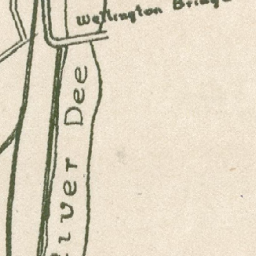 Wellington Bridge
River Dee